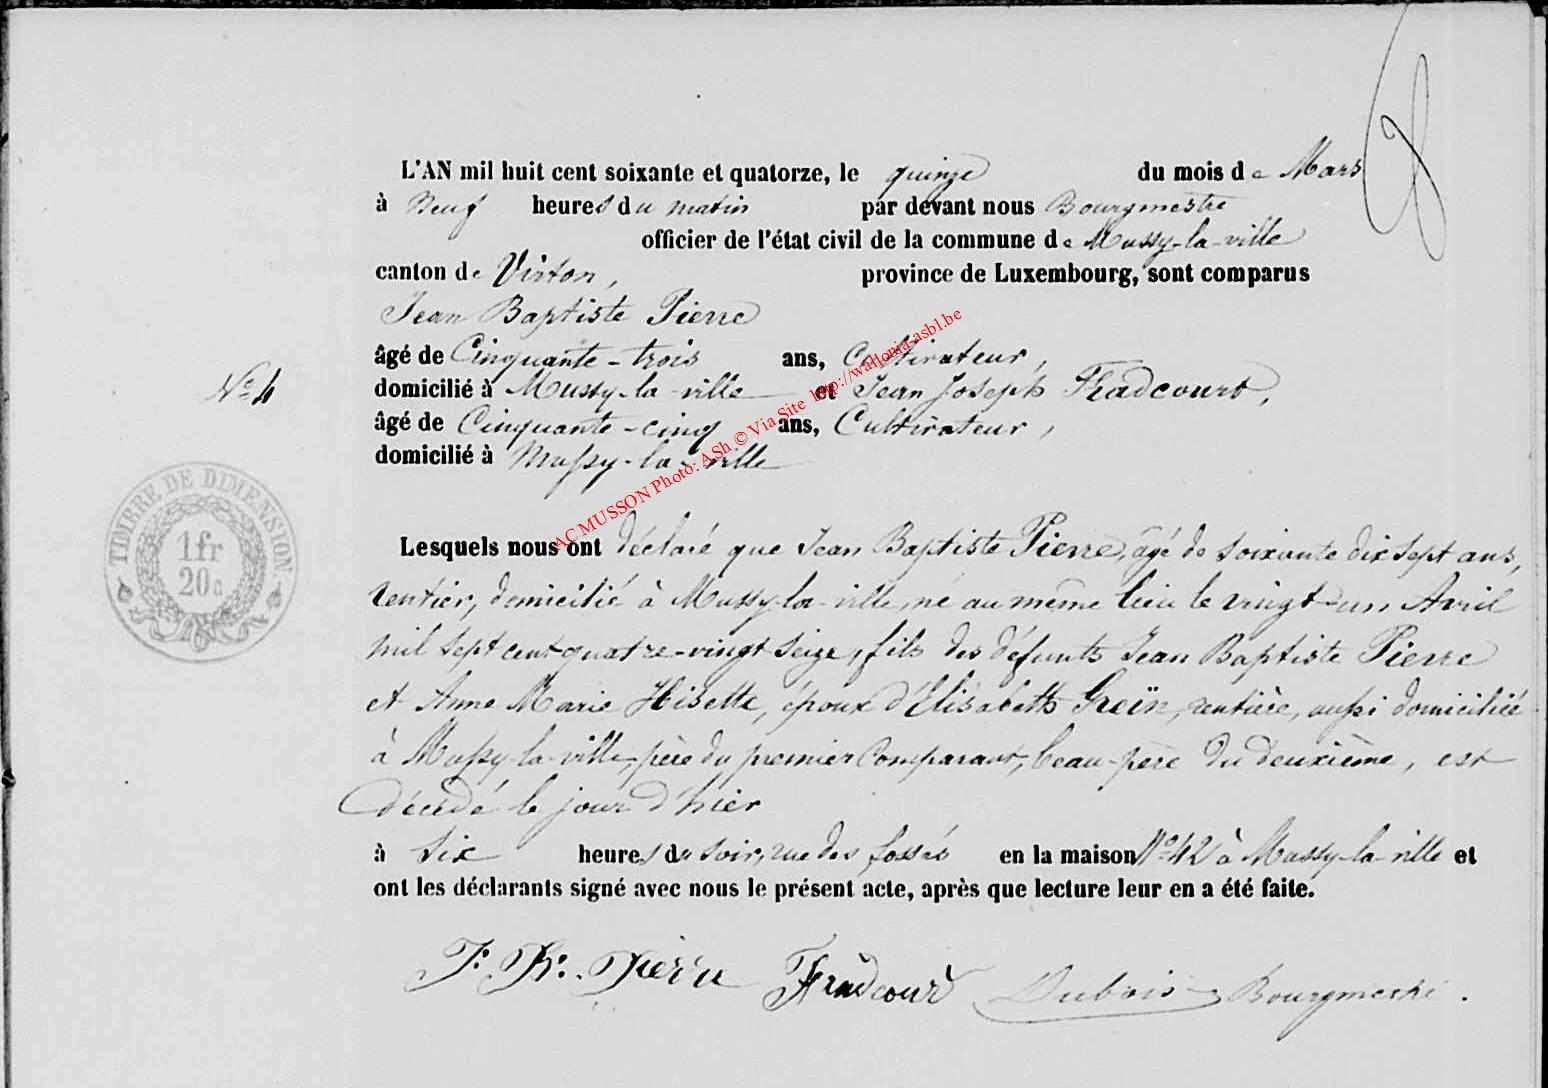 L'AN mil huit cent soixante et quatorze, le quinze du mois de Mars
à Neuf heures du matin par devant nous Bourgmestre
officier de l'état civil de la commune de Mussy-la-ville
canton de Virton, province de Luxembourg, sont comparus
Jean Baptiste Pierre
âgé de Cinquante-trois ans, Cultivateur,
domicilié à Mussy-la-ville et Jean Joseph Fradcourt,
âgé de Cinquante-cinq ans, Cultivateur,
domicilié à Mussy-la-ville
No 4
TIMBRE DE DIMENSION
1fr
20c
AC MUSSON Photo: ASh © Via Site http://wallonia-asbl.be
Lesquels nous ont déclaré que Jean Baptiste Pierre, âgé de soixante dix sept ans,
rentier, domicilié à Mussy-la-ville, né au même lieu le vingt-un Avril
mil sept cent quatre-vingt seize, fils des défunts Jean Baptiste Pierre
et Anne Marie Hisette, époux d'Elisabeth Greïn, rentière, aussi domiciliée
à Mussy-la-ville, père du premier Comparant, beau-père du deuxième, est
décédé le jour d'hier
à six heures du soir, rue des fossés en la maison No 42 à Mussy-la-ville et
ont les déclarants signé avec nous le présent acte, après que lecture leur en a été faite.
J. Bte. Pierre Fradcourt Dubois Bourgmestre.